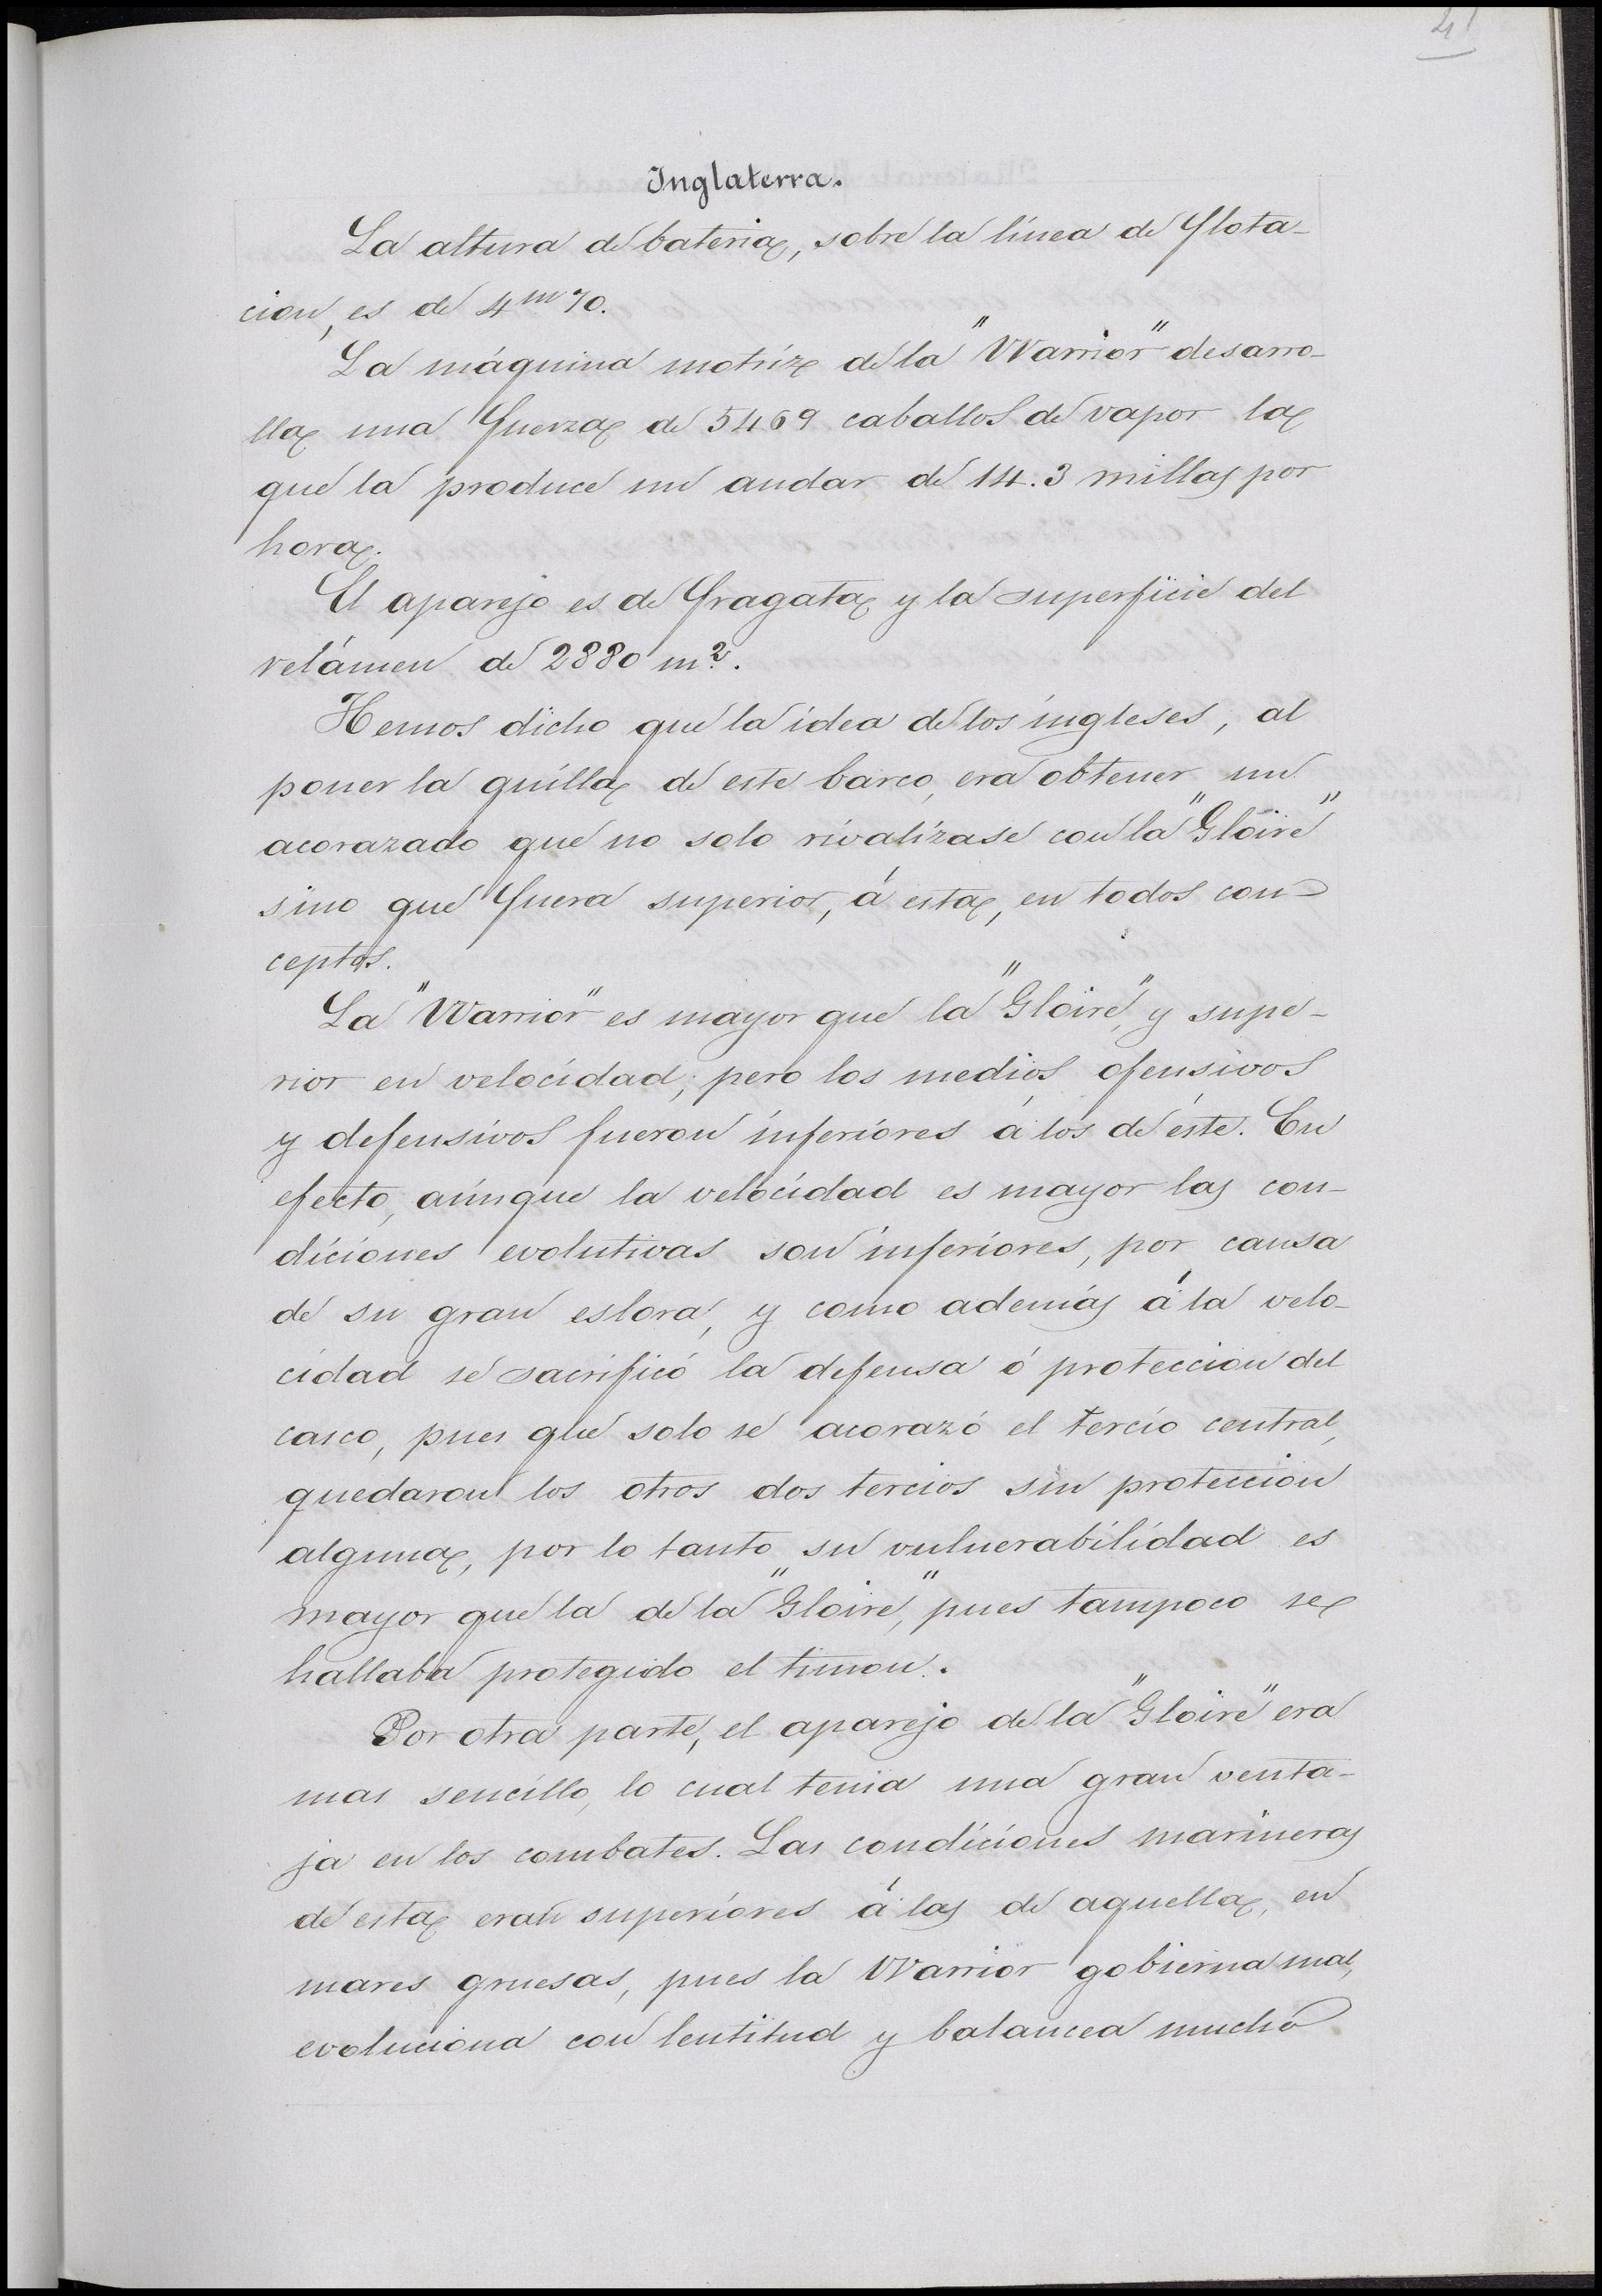 41
Inglaterra.
La altura de bateria, sobre la línea de flota-
cion, es de 4m70.
La máquina motríz de la "Warrior" desarro-
lla una fuerza de 5469 caballos de vapor la
que la produce un andar de 14.3 millas por
hora.
El aparejo es de fragata y la superficie del
velámen de 2880 m2.
Hemos dicho que la idea de los ingleses, al
poner la quilla de este barco, era obtener un
acorazado que no solo rivalizase con la "Gloire"
sino que fuera superior, á esta, en todos con-
ceptos.
La "Warrior" es mayor que la "Gloire", y supe-
rior en velocidad; pero los medios ofensivos
y defensivos fueron inferiores á los de éste. En
efecto, aúnque la velocidad es mayor las con-
diciones evolutivas son inferiores, por causa
de su gran eslora, y como además á la velo-
cidad se sacrificó la defensa ó proteccion del
casco, pues que solo se acorazó el tercio central,
quedaron los otros dos tercios sin proteccion
alguna, por lo tanto su vulnerabilidad es
mayor que la de la "Gloire", pues tampoco se
hallaba protegido el timon.
Por otra parte, el aparejo de la "Gloire" era
mas sencillo, lo cual tenia una gran venta-
ja en los combates. Las condiciones marineras
de esta eran superiores á las de aquella, en
mares gruesas, pues la Warrior gobierna mal,
evoluciona con lentitud y balancea mucho